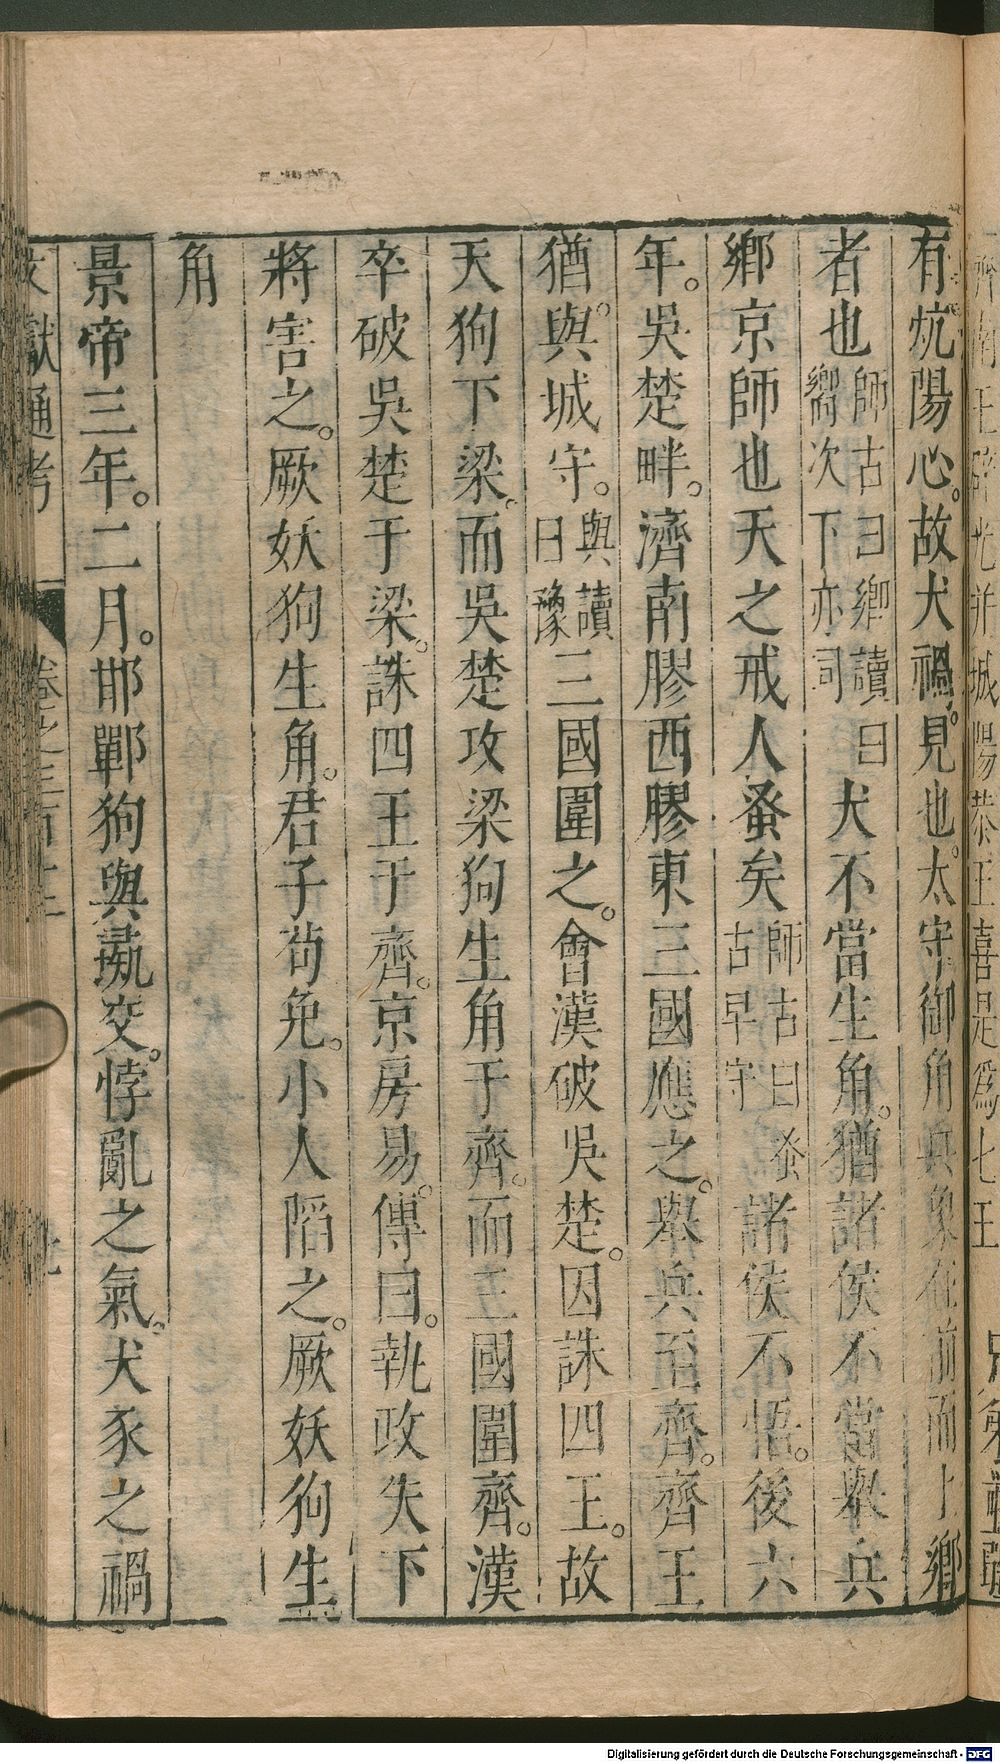 有炕陽心。故犬禍見也。太守御角兵象在前而上鄉
者也師古曰鄉讀曰嚮次下亦同犬不當生角。猶諸侯不當舉兵
鄉京師也天之戒人蚤矣師古曰蚤古早字諸侯不悟。後六
年。吳楚畔。濟南膠西膠東三國應之。舉兵至齊。齊王
猶與城守。與讀曰豫三國圍之。會漢破吳楚。因誅四王。故
天狗下梁。而吳楚攻梁狗生角于齊。而三國圍齊。漢
卒破吳楚于梁。誅四王于齊。京房易。傳曰。執政失下
將害之。厥妖狗生角。君子苟免。小人陷之。厥妖狗生
角
景帝三年。二月。邯鄲狗與彘交。悖亂之氣。犬豕之禍
文獻通考
Digitalisierung gefördert durch die Deutsche Forschungsgemeinschaft - DFG